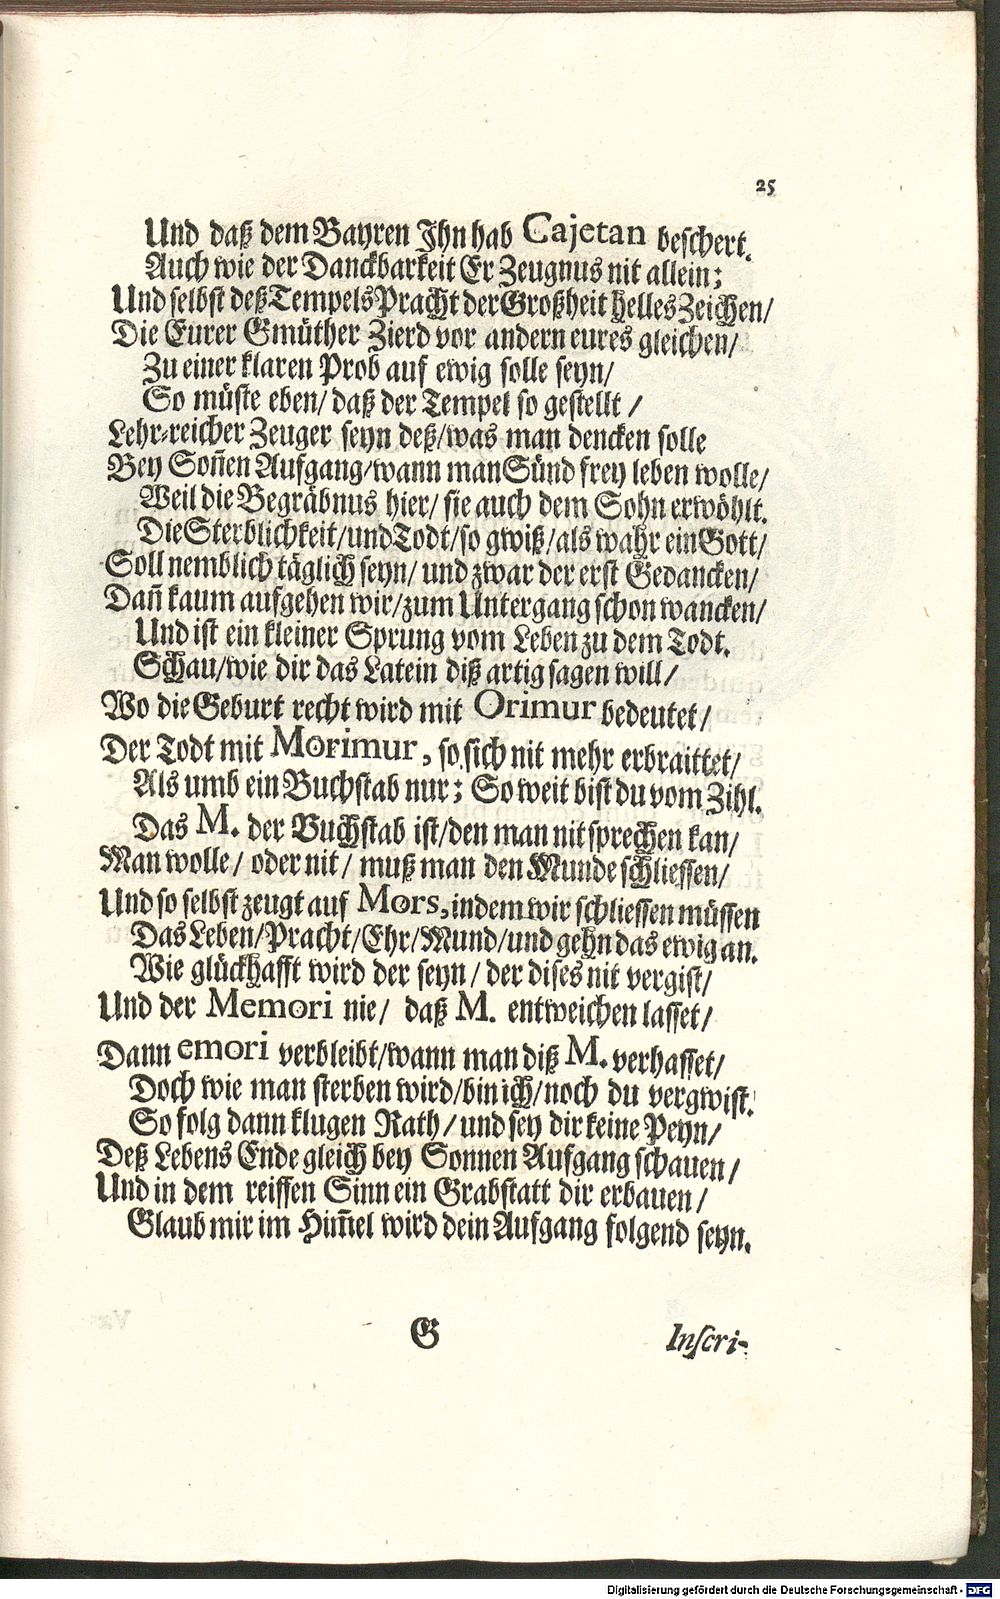 25
Und daß dem Bayren Ihn hab Cajetan beschert.
Auch wie der Danckbarkeit Er Zeugnus nit allein;
Und selbst deß Tempels Pracht der Großheit helles Zeichen/
Die Eurer Gmüther Zierd vor andern eures gleichen/
Zu einer klaren Prob auf ewig solle seyn/
So müste eben/ daß der Tempel so gestellt /
Lehr-reicher Zeuger seyn deß/was man dencken solle
Bey Soñen Aufgang/wann man Sünd frey leben wolle/
Weil die Begräbnus hier/ sie auch dem Sohn erwöhlt.
Die Sterblichkeit/und Todt/so gwiß/als wahr ein Gott/
Soll nemblich täglich seyn/ und zwar der erst Gedancken/
Dañ kaum aufgehen wir/zum Untergang schon wancken/
Und ist ein kleiner Sprung vom Leben zu dem Todt.
Schau/wie dir das Latein diß artig sagen will/
Wo die Geburt recht wird mit Orimur bedeutet/
Der Todt mit Morimur, so sich nit mehr erbraittet/
Als umb ein Buchstab nur; So weit bist du vom Zihl.
Das M. der Buchstab ist/den man nit sprechen kan/
Man wolle/ oder nit/ muß man den Munde schliessen/
Und so selbst zeugt auf Mors, indem wir schliessen müssen
Das Leben/Pracht/Ehr/Mund/und gehn das ewig an.
Wie glückhafft wird der seyn/ der dises nit vergist/
Und der Memori nie/ daß M. entweichen lasset/
Dann emori verbleibt/wann man diß M. verhasset/
Doch wie man sterben wird/bin ich/noch du vergwist.
So folg dann klugen Rath/ und sey dir keine Peyn/
Deß Lebens Ende gleich bey Sonnen Aufgang schauen/
Und in dem reiffen Sinn ein Grabstatt dir erbauen/
Glaub mir im Him̃el wird dein Aufgang folgend seyn.
G
Inscri-
Digitalisierung gefördert durch die Deutsche Forschungsgemeinschaft - DFG